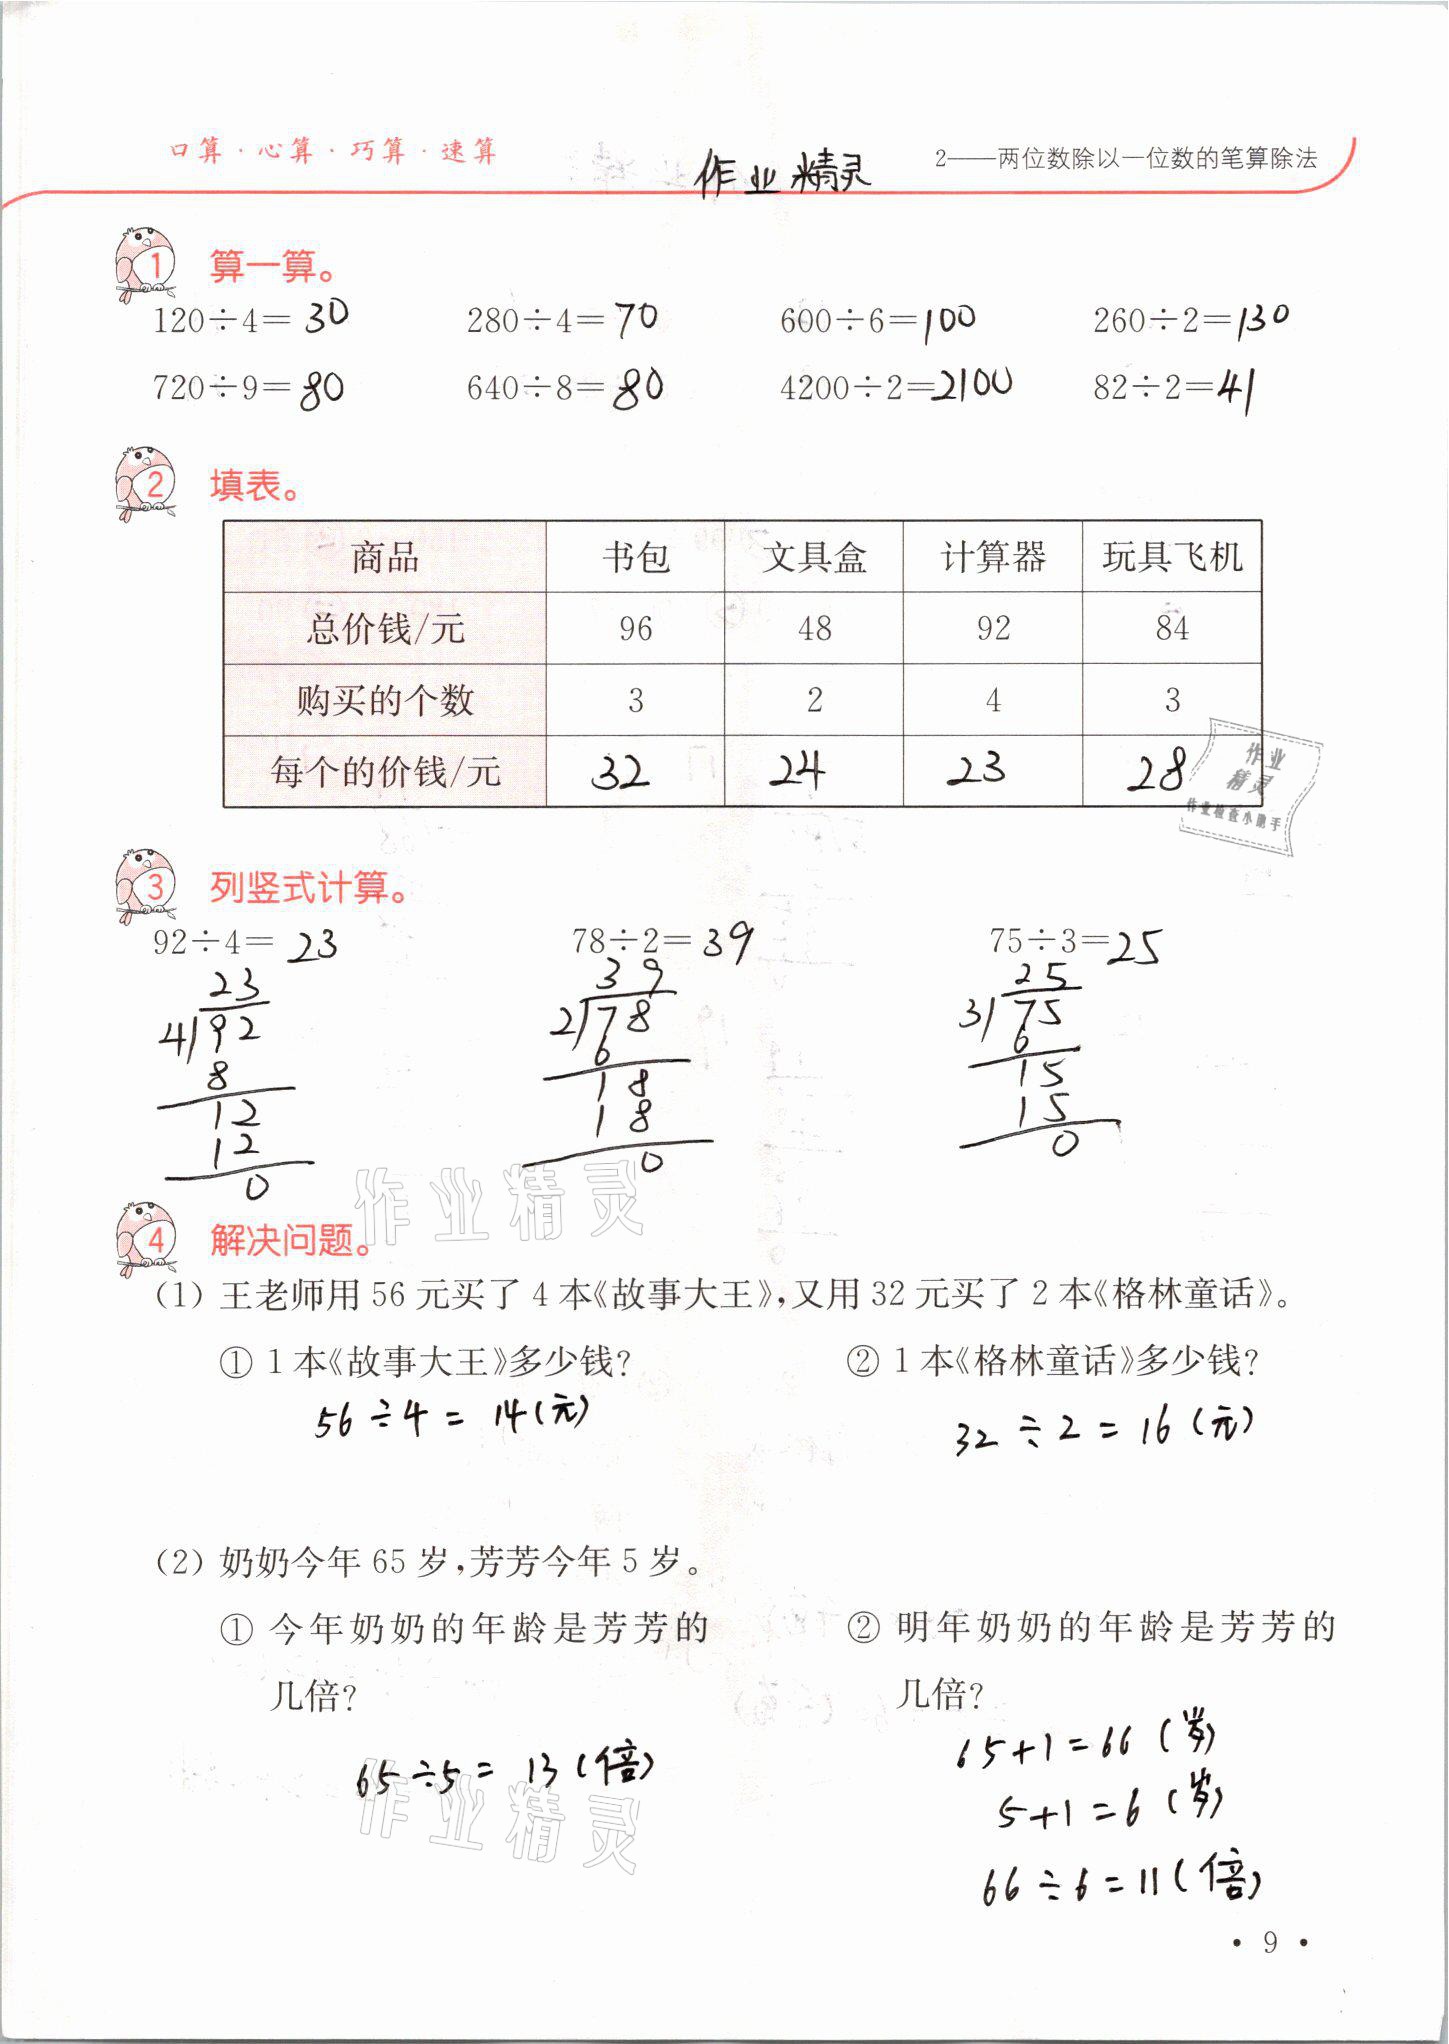 口算·心算·巧算·速算
作业精灵
2——两位数除以一位数的笔算除法
1 算一算。
120÷4=30 280÷4=70 600÷6=100 260÷2=130
720÷9=80 640÷8=80 4200÷2=2100 82÷2=41
2 填表。
商品 书包 文具盒 计算器 玩具飞机
总价钱/元 96 48 92 84
购买的个数 3 2 4 3
每个的价钱/元 32 24 23 28
作业
精灵
作业检查小助手
3 列竖式计算。
92÷4=23 78÷2=39 75÷3=25
23 39 25
4 92 2 78 3 75
8 6 6
12 18 15
12 18 15
0 0 0
作业精灵
4 解决问题。
(1) 王老师用56元买了4本《故事大王》,又用32元买了2本《格林童话》。
① 1本《故事大王》多少钱? ② 1本《格林童话》多少钱?
56÷4=14(元) 32÷2=16(元)
(2) 奶奶今年65岁,芳芳今年5岁。
① 今年奶奶的年龄是芳芳的 ② 明年奶奶的年龄是芳芳的
几倍? 几倍?
65÷5=13(倍) 65+1=66(岁)
5+1=6(岁)
66÷6=11(倍)
作业精灵
·9·